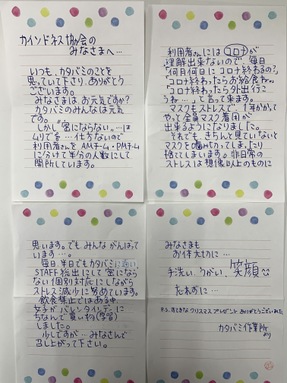 カインドネス協会の
みなさまへ…
いつも、カタバミのことを
思っていて下さり、ありがとう
ございます。
みなさまは、お元気ですか？
カタバミのみんなは元気
です。
しかし“密にならない。”…は
ムリで…仕方ないので
利用者さんを AMチーム・PMチーム
に分けて半分の人数にして
開所しています。
利用者さんにはコロナが
理解出来ないので、毎日
「何月何日にコロナ終わるの？」
「コロナ終わったらお給食ね…」
「コロナ終わったら外出行こ
うね…」と言って来ます。
マスクもストレスで、1年かかっ
てやって全員マスク着用が
出来るようになりました。
それでも、きちんと見ていないと
マスクを噛みちってしまったり
捨ててしまいます。非日常の
ストレスは想像以上のものだと
思います。でも、みんながんばって
います…。
毎日半日でもカタバミに通い、
STAFF総出にして密にならな
い個別対応にしながら
ストレス減少に努めています。
飲食禁止ではあるが、
女子がバレンタインデーに
ちなんで買い物(学習)
しました。
少しですが…みなさんで
召し上がって下さい。
みなさまも
お体大切に…
手洗い、うがい、笑顔
たやさずに…
カタバミ作業所